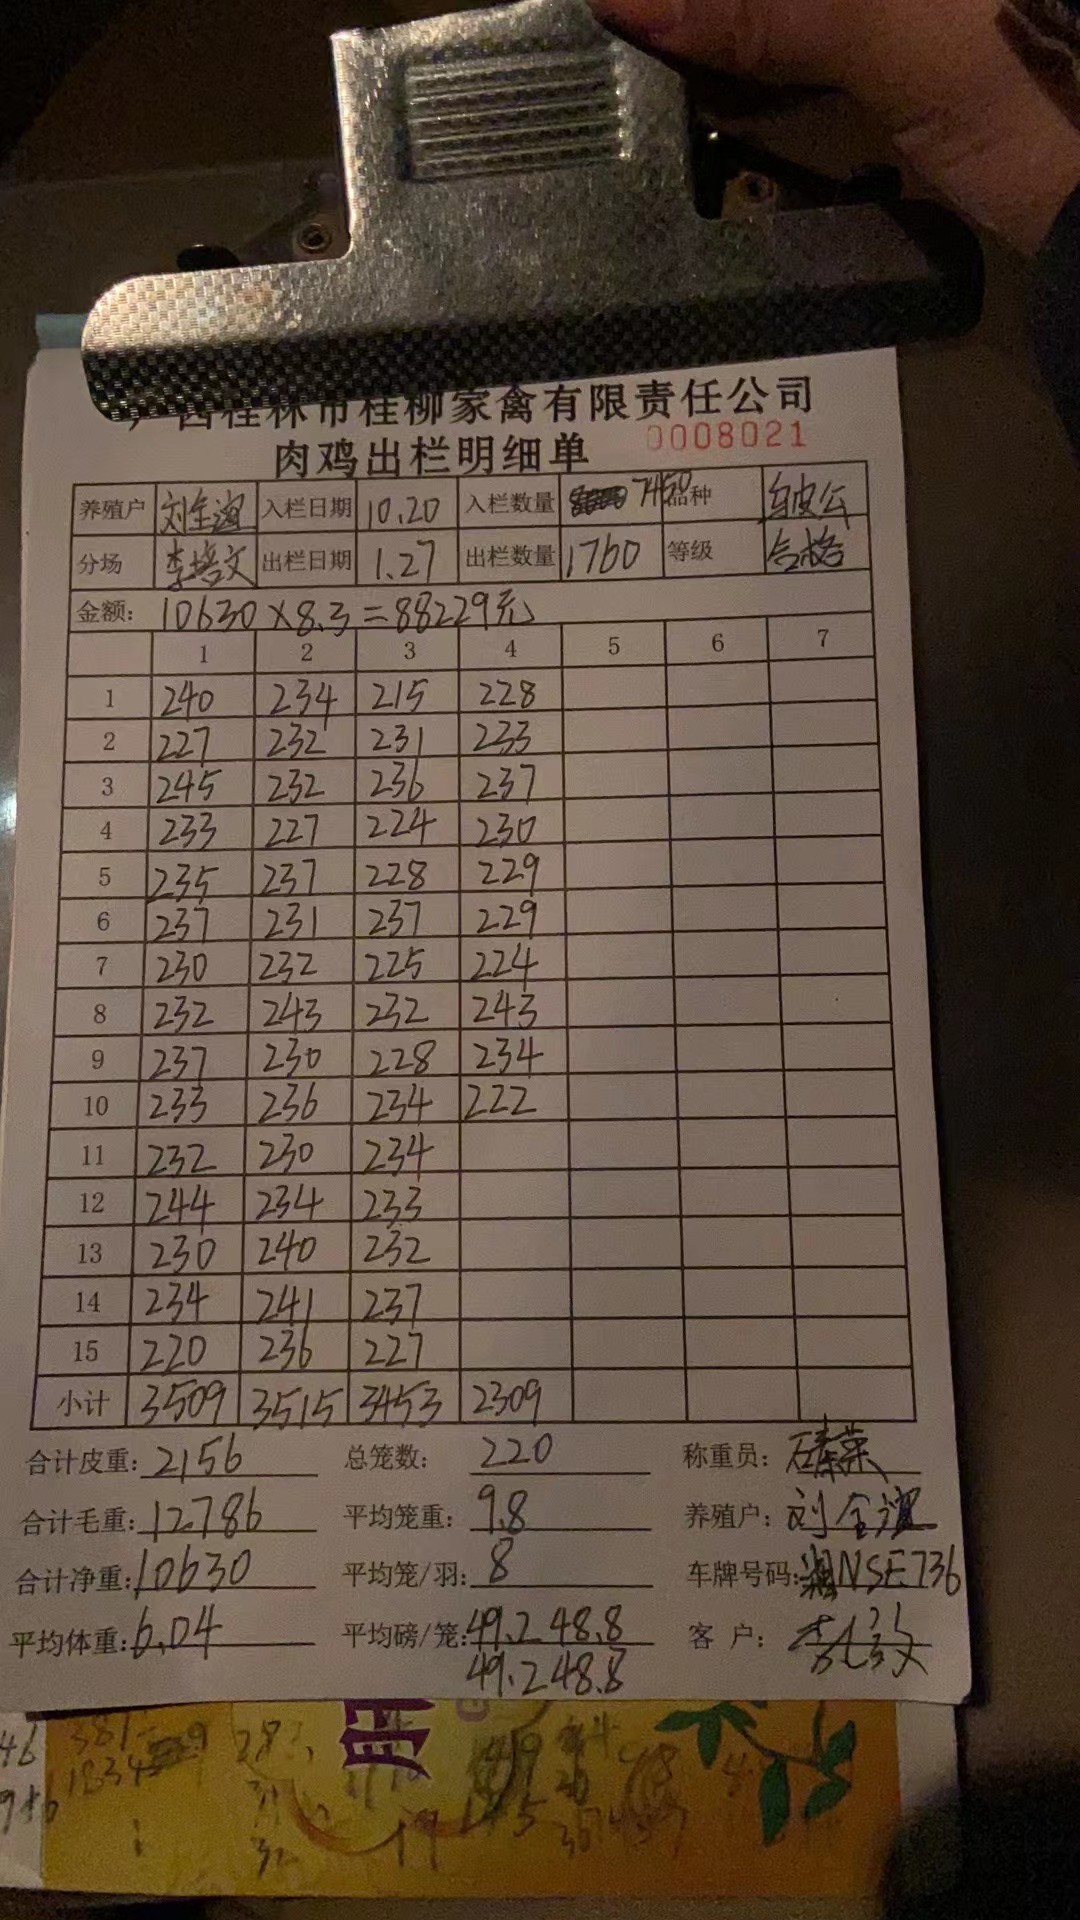 广西桂林市桂柳家禽有限责任公司
肉鸡出栏明细单 0008021
养殖户 刘全 入栏日期 10.20 入栏数量 7450 品种 乌皮公
分场 李培文 出栏日期 1.27 出栏数量 1760 等级 合格
金额: 10630×8.3=88229元
1 2 3 4 5 6 7
1 240 234 215 228
2 227 232 231 233
3 245 232 236 237
4 233 227 224 230
5 235 237 228 229
6 237 231 237 229
7 230 232 225 224
8 232 243 232 243
9 237 230 228 234
10 233 236 234 222
11 232 230 234
12 244 234 233
13 230 240 232
14 234 241 237
15 220 236 227
小计 3509 3515 3453 2309
合计皮重: 2156 总笼数: 220 称重员:
合计毛重: 12786 平均笼重: 9.8 养殖户: 刘全
合计净重: 10630 平均笼/羽: 8 车牌号码: 湘NSE736
平均体重: 6.04 平均磅/笼: 49.2 48.8 客户:
49.2 48.8